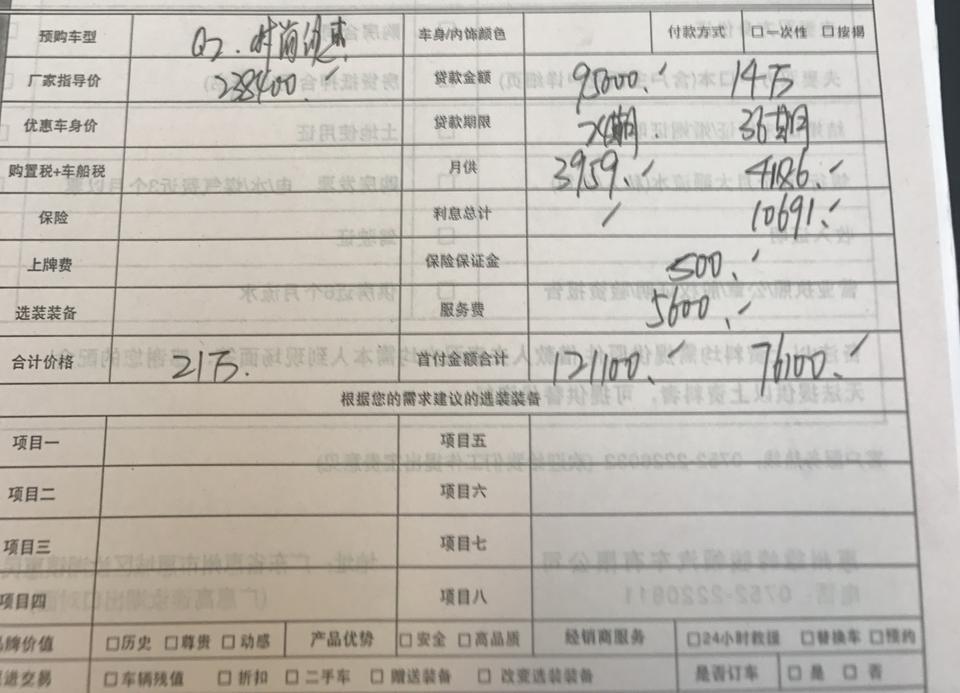 预购车型 Q2.时尚 车身/内饰颜色 付款方式 □一次性 □按揭
厂家指导价 238400. 贷款金额 95000. 14万
优惠车身价 贷款期限 24期 36期
购置税+车船税 月供 3959. 4186.
保险 利息总计 / 10691.
上牌费 保险保证金 500.
选装装备 服务费 5600.
合计价格 21万. 首付金额合计 121100. 76100.
根据您的需求建议的选装装备
项目一 项目五
项目二 项目六
项目三 项目七
项目四 项目八
牌价值 □历史 □尊贵 □动感 产品优势 □安全 □高品质 经销商服务 □24小时救援 □替换车 □预约
进交易 □车辆残值 □折扣 □二手车 □赠送装备 □改变选装装备 是否订车 □是 □否